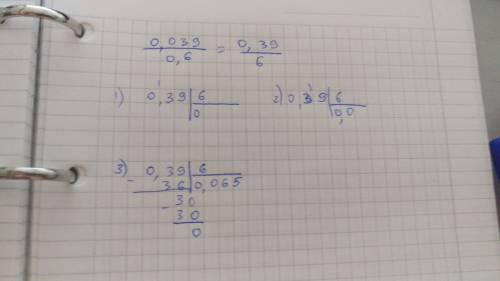 0,039 / 0,6 = 0,39 / 6
1) 0,39 | 6
0
2) 0,39 | 6
0,0
3) 0,39 | 6
- 36 | 0,065
- 30
30
0